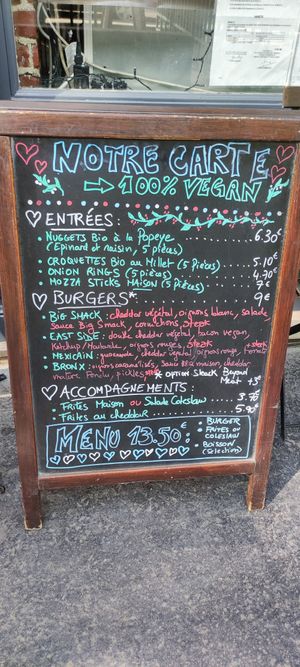 NOTRE CARTE
→ 100% VEGAN
ENTRÉES :
• NUGGETS Bio à la Popeye 6.30€
(Épinard et raisin, 5 pièces)
• CROQUETTES Bio au Millet (5 Pièces) 5.10€
• ONION RINGS (5 pièces) 4.90€
• MOZZA STICKS MAISON (5 Pièces) 7€
BURGERS* 9€
• BIG SMACK : cheddar végétal, oignons blanc, salade
Sauce Big Smack, cornichons, steak
• EAST SIDE : double cheddar végétal, bacon vegan,
Ketchup / Moutarde, oignons rouges, steak
• MEXICAIN : guacamole, cheddar végétal, oignons rouges, + steak
tomate
• BRONX : oignons caramélisés, sauce BBQ maison, cheddar
mature fondu, pickles, steak * option Steak Beyond
Meat +3€
ACCOMPAGNEMENTS :
• FRITES Maison ou Salade Coleslaw 3.50€
• FRITES au cheddar 5.90€
MENU 13.50€ :
• BURGER
• FRITES OU
COLESLAW
• BOISSON
(Sélection)